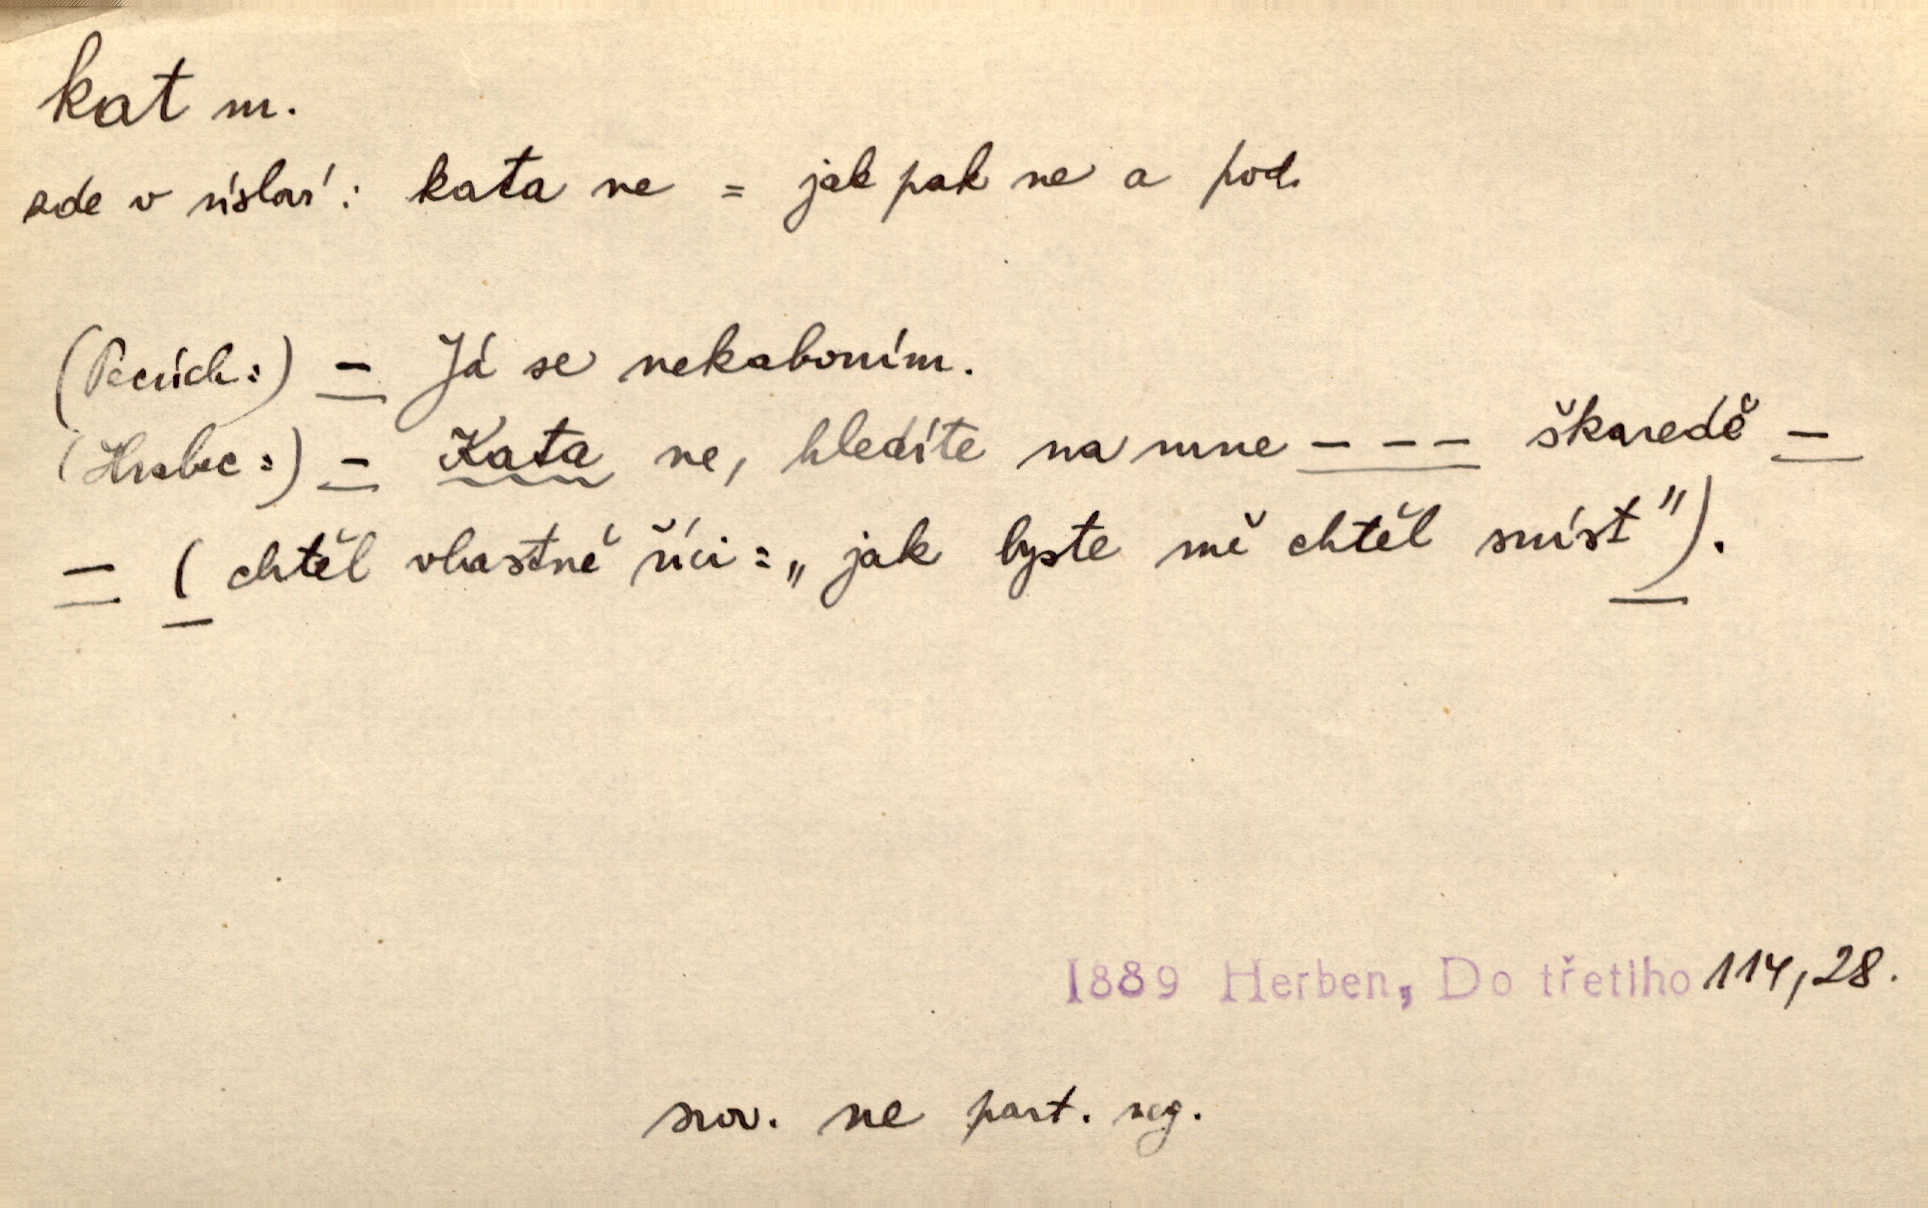 kat m.
zde v úsloví: kata ne = jak pak ne a pod.
(Pecúch:) – Já se nekaboním.
(Hrabec:) – Kata ne, hledíte na mne – – – škaredě –
– (chtěl vlastně říci: „jak byste mě chtěl sníst").
1889 Herben, Do třetího 114,28.
srov. ne part. neg.